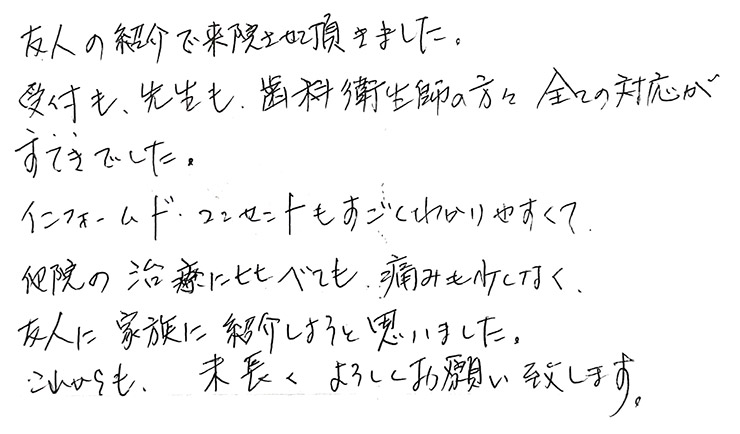 友人の紹介で来院させて頂きました。
受付も、先生も、歯科衛生師の方々 全ての対応が
すてきでした。
インフォームド・コンセントもすごくわかりやすくて、
他院の治療に比べても、痛みも少しなく、
友人に家族に紹介しようと思いました。
これからも、末長く よろしくお願い致します。